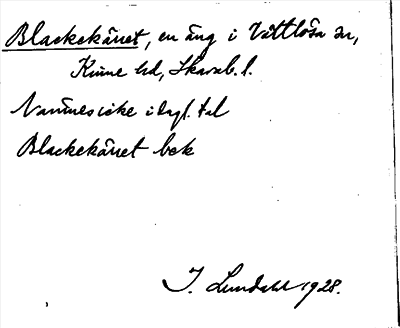 Blackekärret, en äng i Vättlösa sn,
Kinne hd, Skarab. l.
Namnes icke i dagl. tal
Blackekärret bok
I. Lundahl 1928.